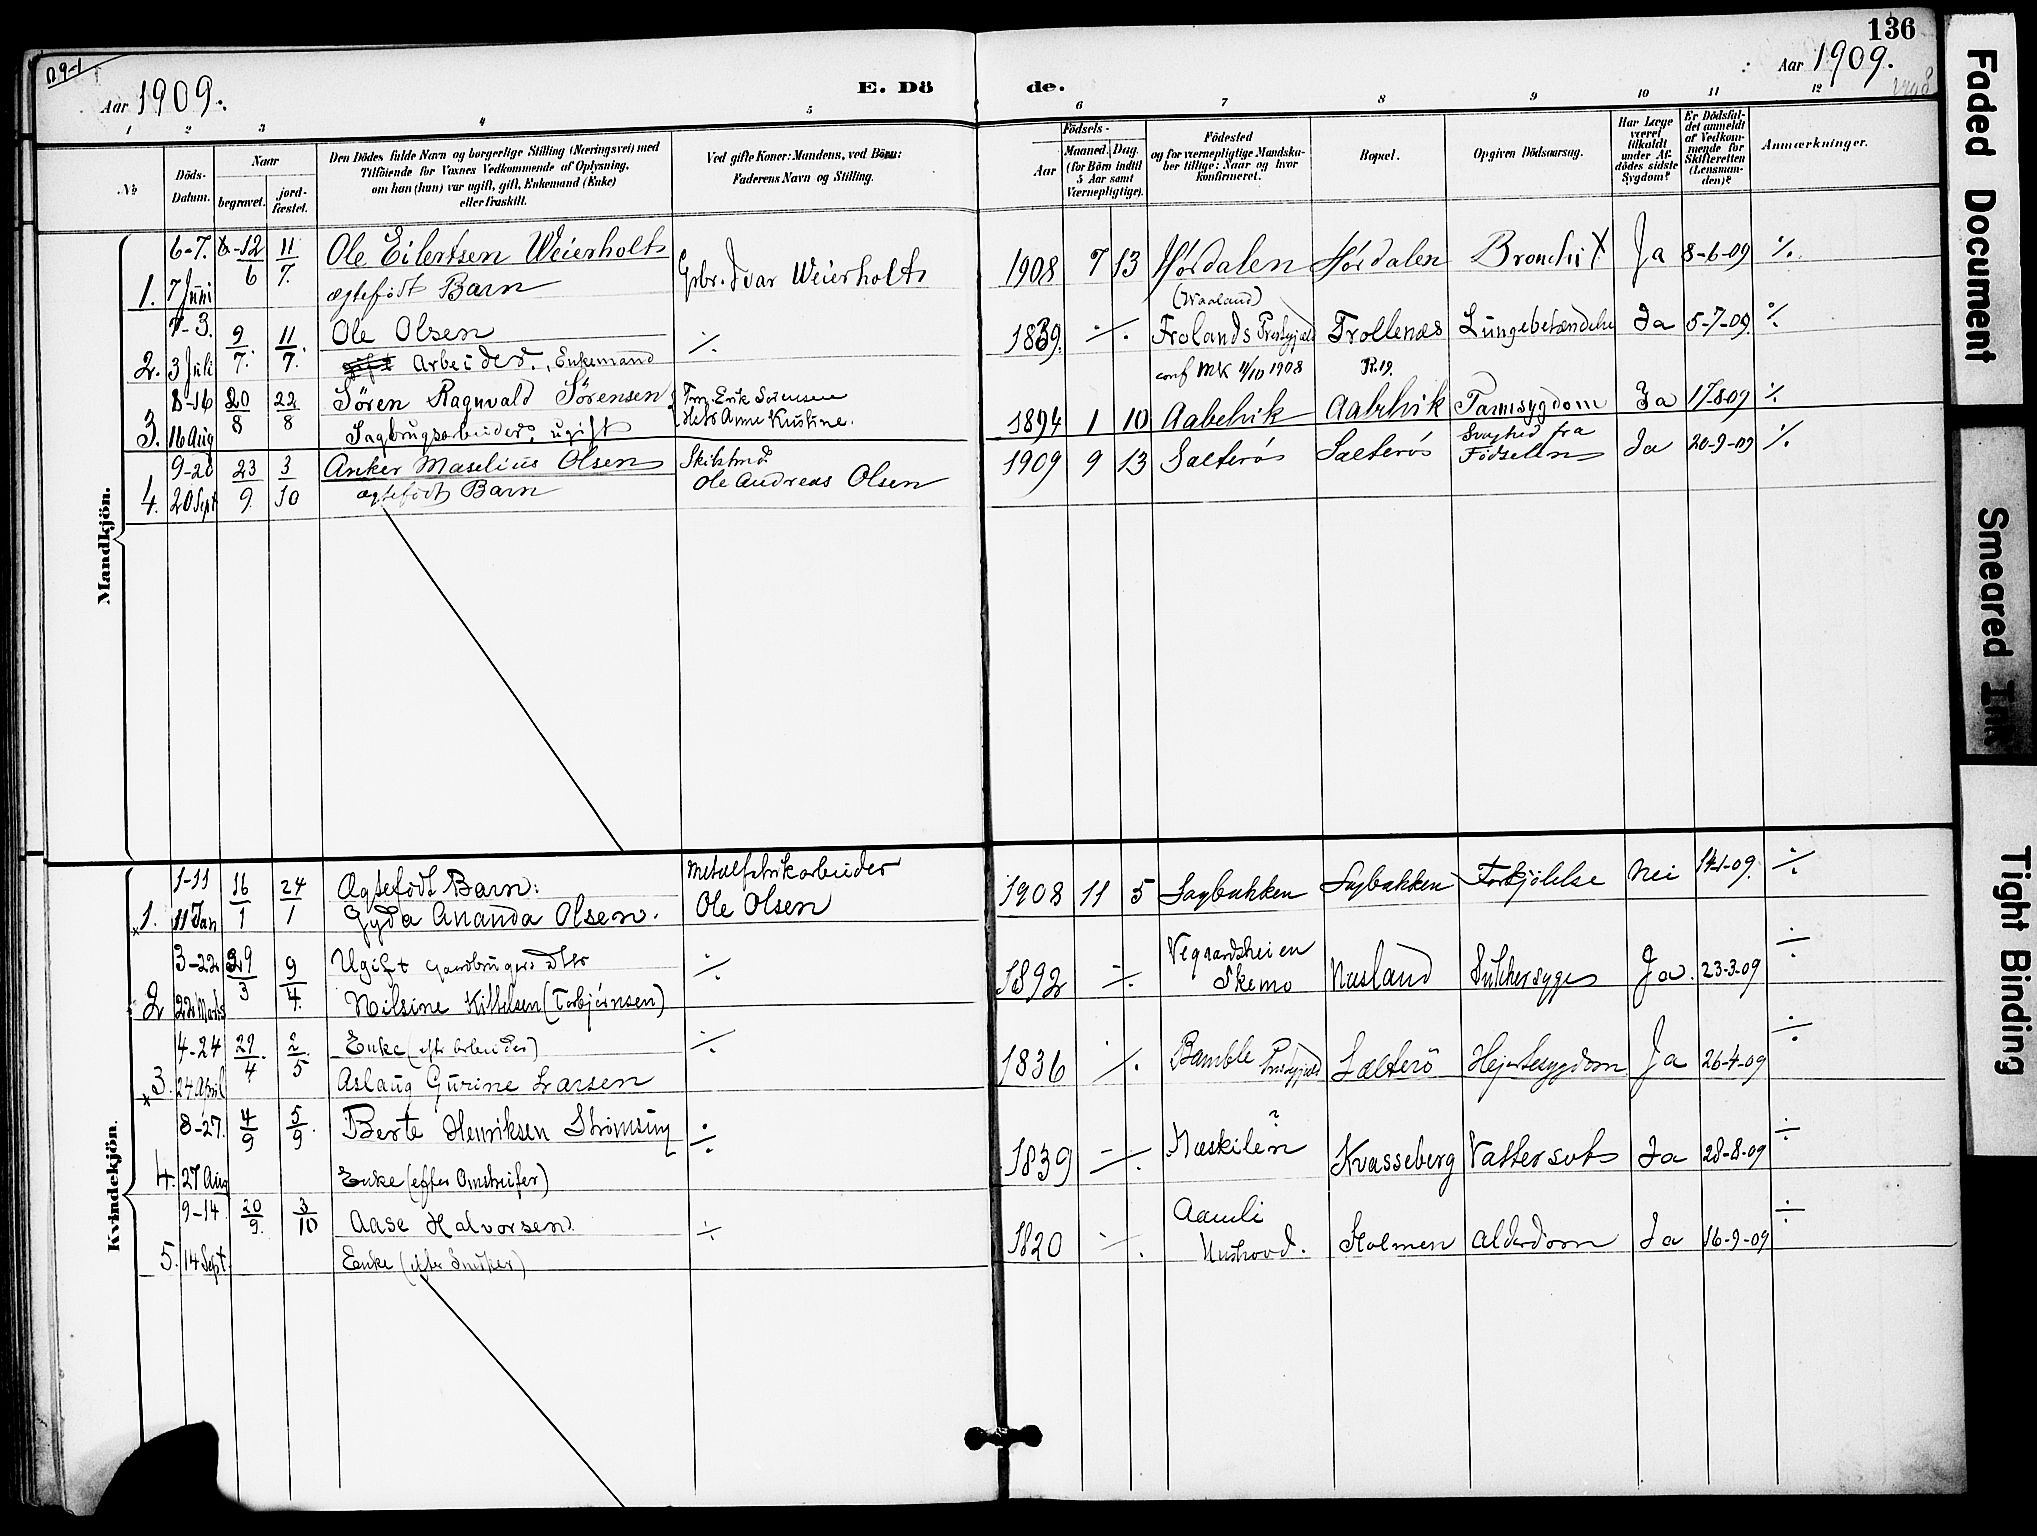 136
09-1
Aar 1909.
E. Dö
de.
Aar 1909.
1
2
3
4
5
6
7
8
9
10
11
12
No
Döds-
Datum.
Naar
begravet.
jord-
fæstet.
Den Dödes fulde Navn og borgerlige Stilling (Næringsvei) med
Tilföiende for Voxnes Vedkommende af Oplysning,
om han (hun) var ugift, gift, Enkemand (Enke)
eller fraskilt.
Ved gifte Koner: Mandens, ved Börn:
Faderens Navn og Stilling.
Födsels-
Aar
Maaned. Dag.
(for Börn indtil
5 Aar samt
Værnepligtige).
Födested
og for værnepligtige Mandska-
ber tillige: Naar og hvor
konfirmeret.
Bopæl.
Opgiven Dödsaarsag.
Har Læge
været
tilkaldt
under Af-
dødes sidste
Sygdom?
Er Dödsfal-
det anmeldt
af Vedkom-
mende for
Skifteretten
(Lensman-
den)?
Anmærkninger.
Mandkjön.
6-7. 6-12 11 Ole Eilertsen Weierholt
1. 7 Juni 6 7. ægtefødt Barn Gbr. Ivar Weierholt 1908 7 13 Hørdalen Hørdalen Bronchit Ja 8-6-09 %
(Waaland)
7-3. 9 11 Ole Olsen
2. 3 Juli 7. 7. Arbeider, Enkemand % 1839. % Frolands Prestgjeld Trollenæs Lungebetændelse Ja 5-7-09. %
conf MK 11/10 1908
8-16 20 22 Søren Ragnvald Sørensen Erik Sørensen
3. 16 Aug 8 8 Sagbrugsarbeider, ugift Anne Kristine. 1894 1 10 Aabelvik Aabelvik Tarmsygdom Ja 17-8-09 %
9-20 23 3 Anker Maselius Olsen
4. 20 Sept 9 10 ægtefødt Barn Ole Andreas Olsen 1909 9 13 Salterøs Salterøs Svaghed fra
Fødselen Ja 20-9-09 %
Kvindekjön.
1-11 16 24 Ægtefødt Barn: Metalfabrikarbeider
1. 11 Jan 1 1 Gyda Ananda Olsen. Ole Olsen 1908 11 5 Sagbakken Sagbakken Forkjølelse Nei 14-1-09. ÷
3-22 29 9 Ugift Gaardbrugers dtr
2 22 Marts 3 4. Nilsine Kittelsen (Torbjørnsen) ÷ 1892 ÷ Vegaardsheien
Skemo Næsland Sukkersyge Ja. 23-3-09 ÷
4-24 29 2 Enke (efter Arbeider)
3. 24 April 4 5 Aslaug Gurine Larsen ÷ 1836 % Bamble Prestgjeld Salterø Hjertesygdom Ja 26-4-09 ÷
8-27. 4 5 Berte Henriksen Strømsüng
4. 27 Aug 9 9 Enke (efter Omstreifer) ÷ 1839 ÷ Næskilen ? Kvasseberg Vattersot Ja 28-8-09 ÷
9-14 20 3 Aase Halvorsen
5. 14 Sept. 9. 10 Enke (efter Snedker) ÷ 1820 ÷ Aamli
Holmen Alderdom Ja 16-9-09 ÷
Faded Document
Smeared Ink
Tight Binding